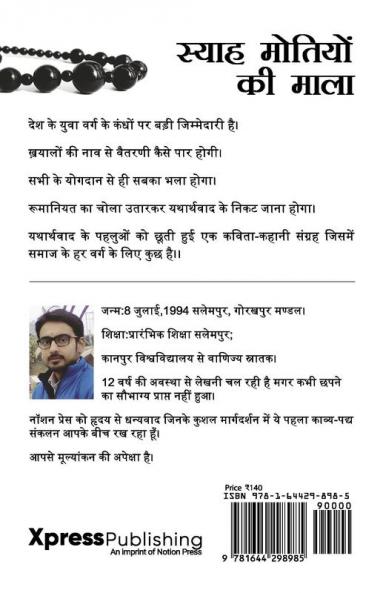 स्याह मोतियों
की माला
देश के युवा वर्ग के कंधों पर बड़ी जिम्मेदारी है।
ख़यालों की नाव से वैतरणी कैसे पार होगी।
सभी के योगदान से ही सबका भला होगा।
रूमानियत का चोला उतारकर यथार्थवाद के निकट जाना होगा।
यथार्थवाद के पहलुओं को छूती हुई एक कविता-कहानी संग्रह जिसमें
समाज के हर वर्ग के लिए कुछ है।।
जन्म:8 जुलाई,1994 सलेमपुर, गोरखपुर मण्डल।
शिक्षा:प्रारंभिक शिक्षा सलेमपुर;
कानपुर विश्वविद्यालय से वाणिज्य स्नातक।
12 वर्ष की अवस्था से लेखनी चल रही है मगर कभी छपने
का सौभाग्य प्राप्त नहीं हुआ।
नॉशन प्रेस को हृदय से धन्यवाद जिनके कुशल मार्गदर्शन में ये पहला काव्य-पद्य
संकलन आपके बीच रख रहा हूँ।
आपसे मूल्यांकन की अपेक्षा है।
Price ₹140
ISBN 978-1-64429-898-5
90000
9 781644 298985
XpressPublishing
An imprint of Notion Press